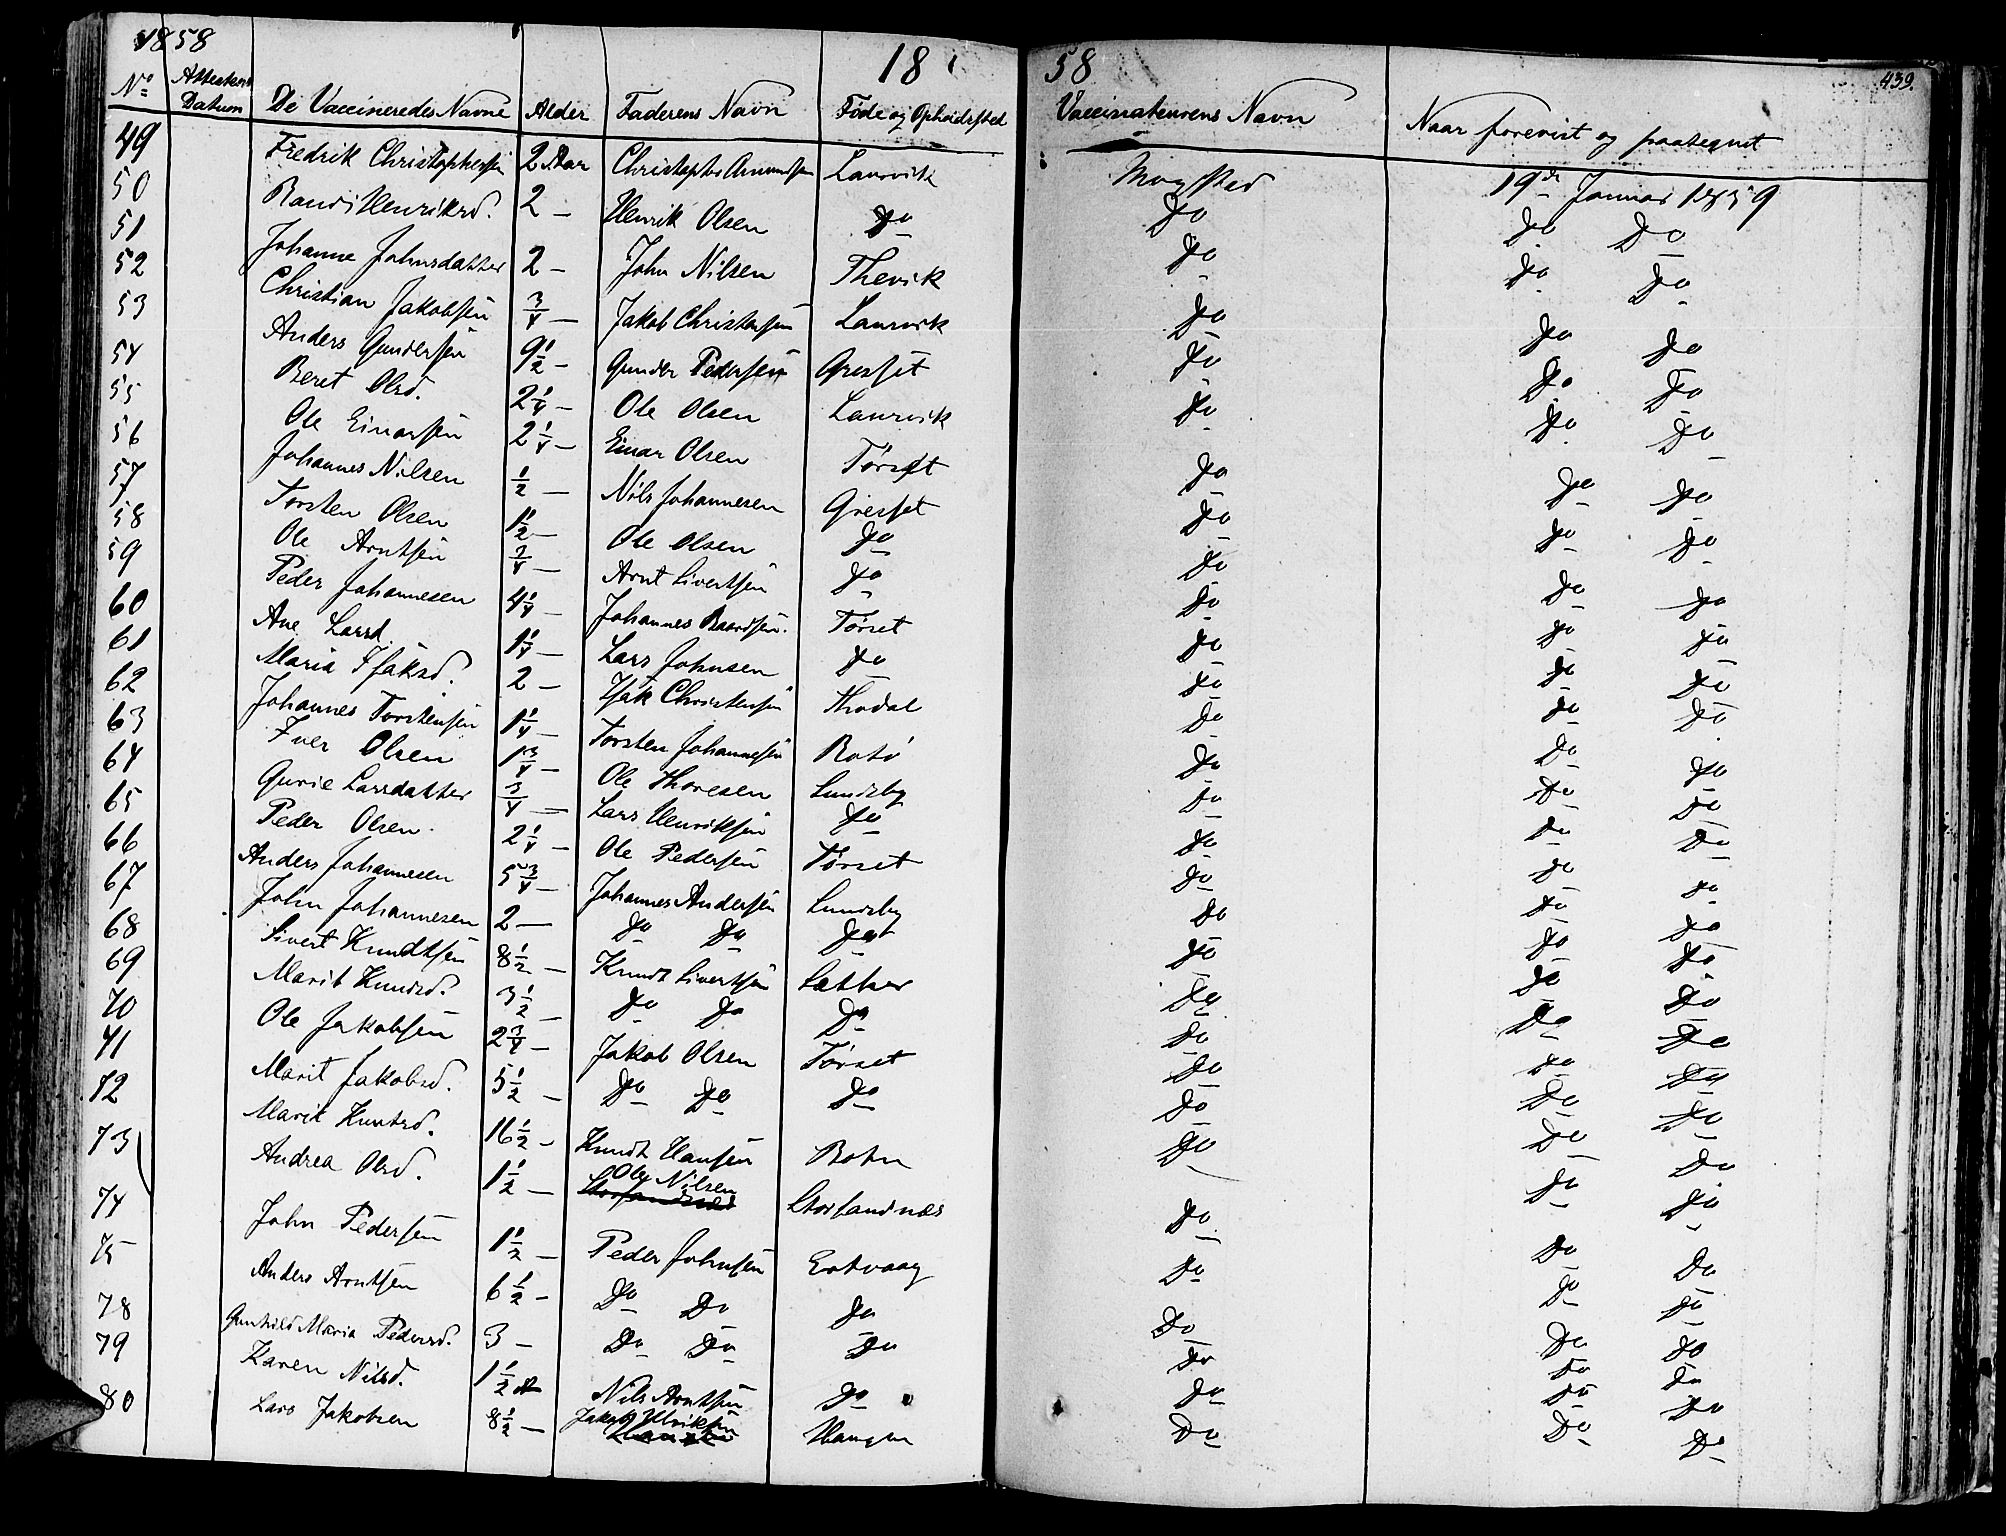 1858 18 58 439.
No Attestens Datum De Vaccineredes Navne Alder Faderens Navn Føde og Opholdssted Vaccinateurens Navn Naar forevist og paategnet
49 Fredrik Christophersen 2 Aar Christopher Amundsen Laurvik Mogsted 19de Januar 1859
50 Randi Henriksd. 2 — Henrik Olsen Do Do Do Do
51 Johanne Johnsdatter 2 — John Nilsen Thevik Do Do Do
52 Christian Jakobsen 3/4 — Jakob Christensen Laurvik Do Do Do
53 Anders Gundersen 9 1/2 — Gunder Pedersen Gresset Do Do Do
54 Beret Olsd. 2 1/4 — Ole Olsen Laurvik Do Do Do
55 Ole Einarsen 2 1/4 — Einar Olsen Tørset Do Do Do
56 Johannes Nilsen 1/2 — Nils Johannesen Gresset Do Do Do
57 Torsten Olsen 1 1/2 — Ole Olsen Do Do Do Do
58 Ole Arntsen 3/4 — Arnt Sivertsen Do Do Do Do
59 Peder Johannesen 4 1/4 — Johannes Baardsen. Tørset Do Do Do
60 Ane Larsd. 1 1/4 — Lars Johnsen Do Do Do Do
61 Maria Isaksd. 2 — Isak Christensen Thodal Do Do Do
62 Johannes Torstensen 1 1/4 — Torsten Johannesen Rotø Do Do Do
63 Iver Olsen 1 3/4 — Ole Thoresen Lundsby Do Do Do
64 Gurie Larsdatter 3/4 — Lars Henriksen Do Do Do Do
65 Peder Olsen. 2 1/4 — Ole Pedersen Tørset Do Do Do
66 Anders Johannesen 5 3/4 — Johannes Andersen Lundsby Do Do Do
67 John Johannesen 2 — Do Do Do Do Do Do
68 Sivert Knudtsen 8 1/2 — Knudt Sivertsen Sætter Do Do Do
69 Marit Knudsd. 3 1/2 — Do Do Do Do Do Do
70 Ole Jakobsen 2 3/4 — Jakob Olsen Tørset Do Do Do
71 Marit Jakobsd. 5 1/2 — Do Do Do Do Do Do
72 Marit Knutsd. 16 1/2 — Knudt Hansen Botn Do Do Do
73 Andrea Olsd. 1 1/2 — Ole Nilsen Storsandnæs Do Do Do
74 John Pedersen 1 1/2 — Peder Johnsen Ertvaag Do Do Do
75 Anders Arntsen 6 1/2 — Do Do Do Do Do Do
78 Gunhild Maria Pedersd. 3 — Do Do Do Do Do Do
79 Karen Nilsd. 1 1/2 Nils Arntsen Do Do Do Do
80 Lars Jakobsen 8 1/2 — Jakob Ulriksen Haugen Do Do Do